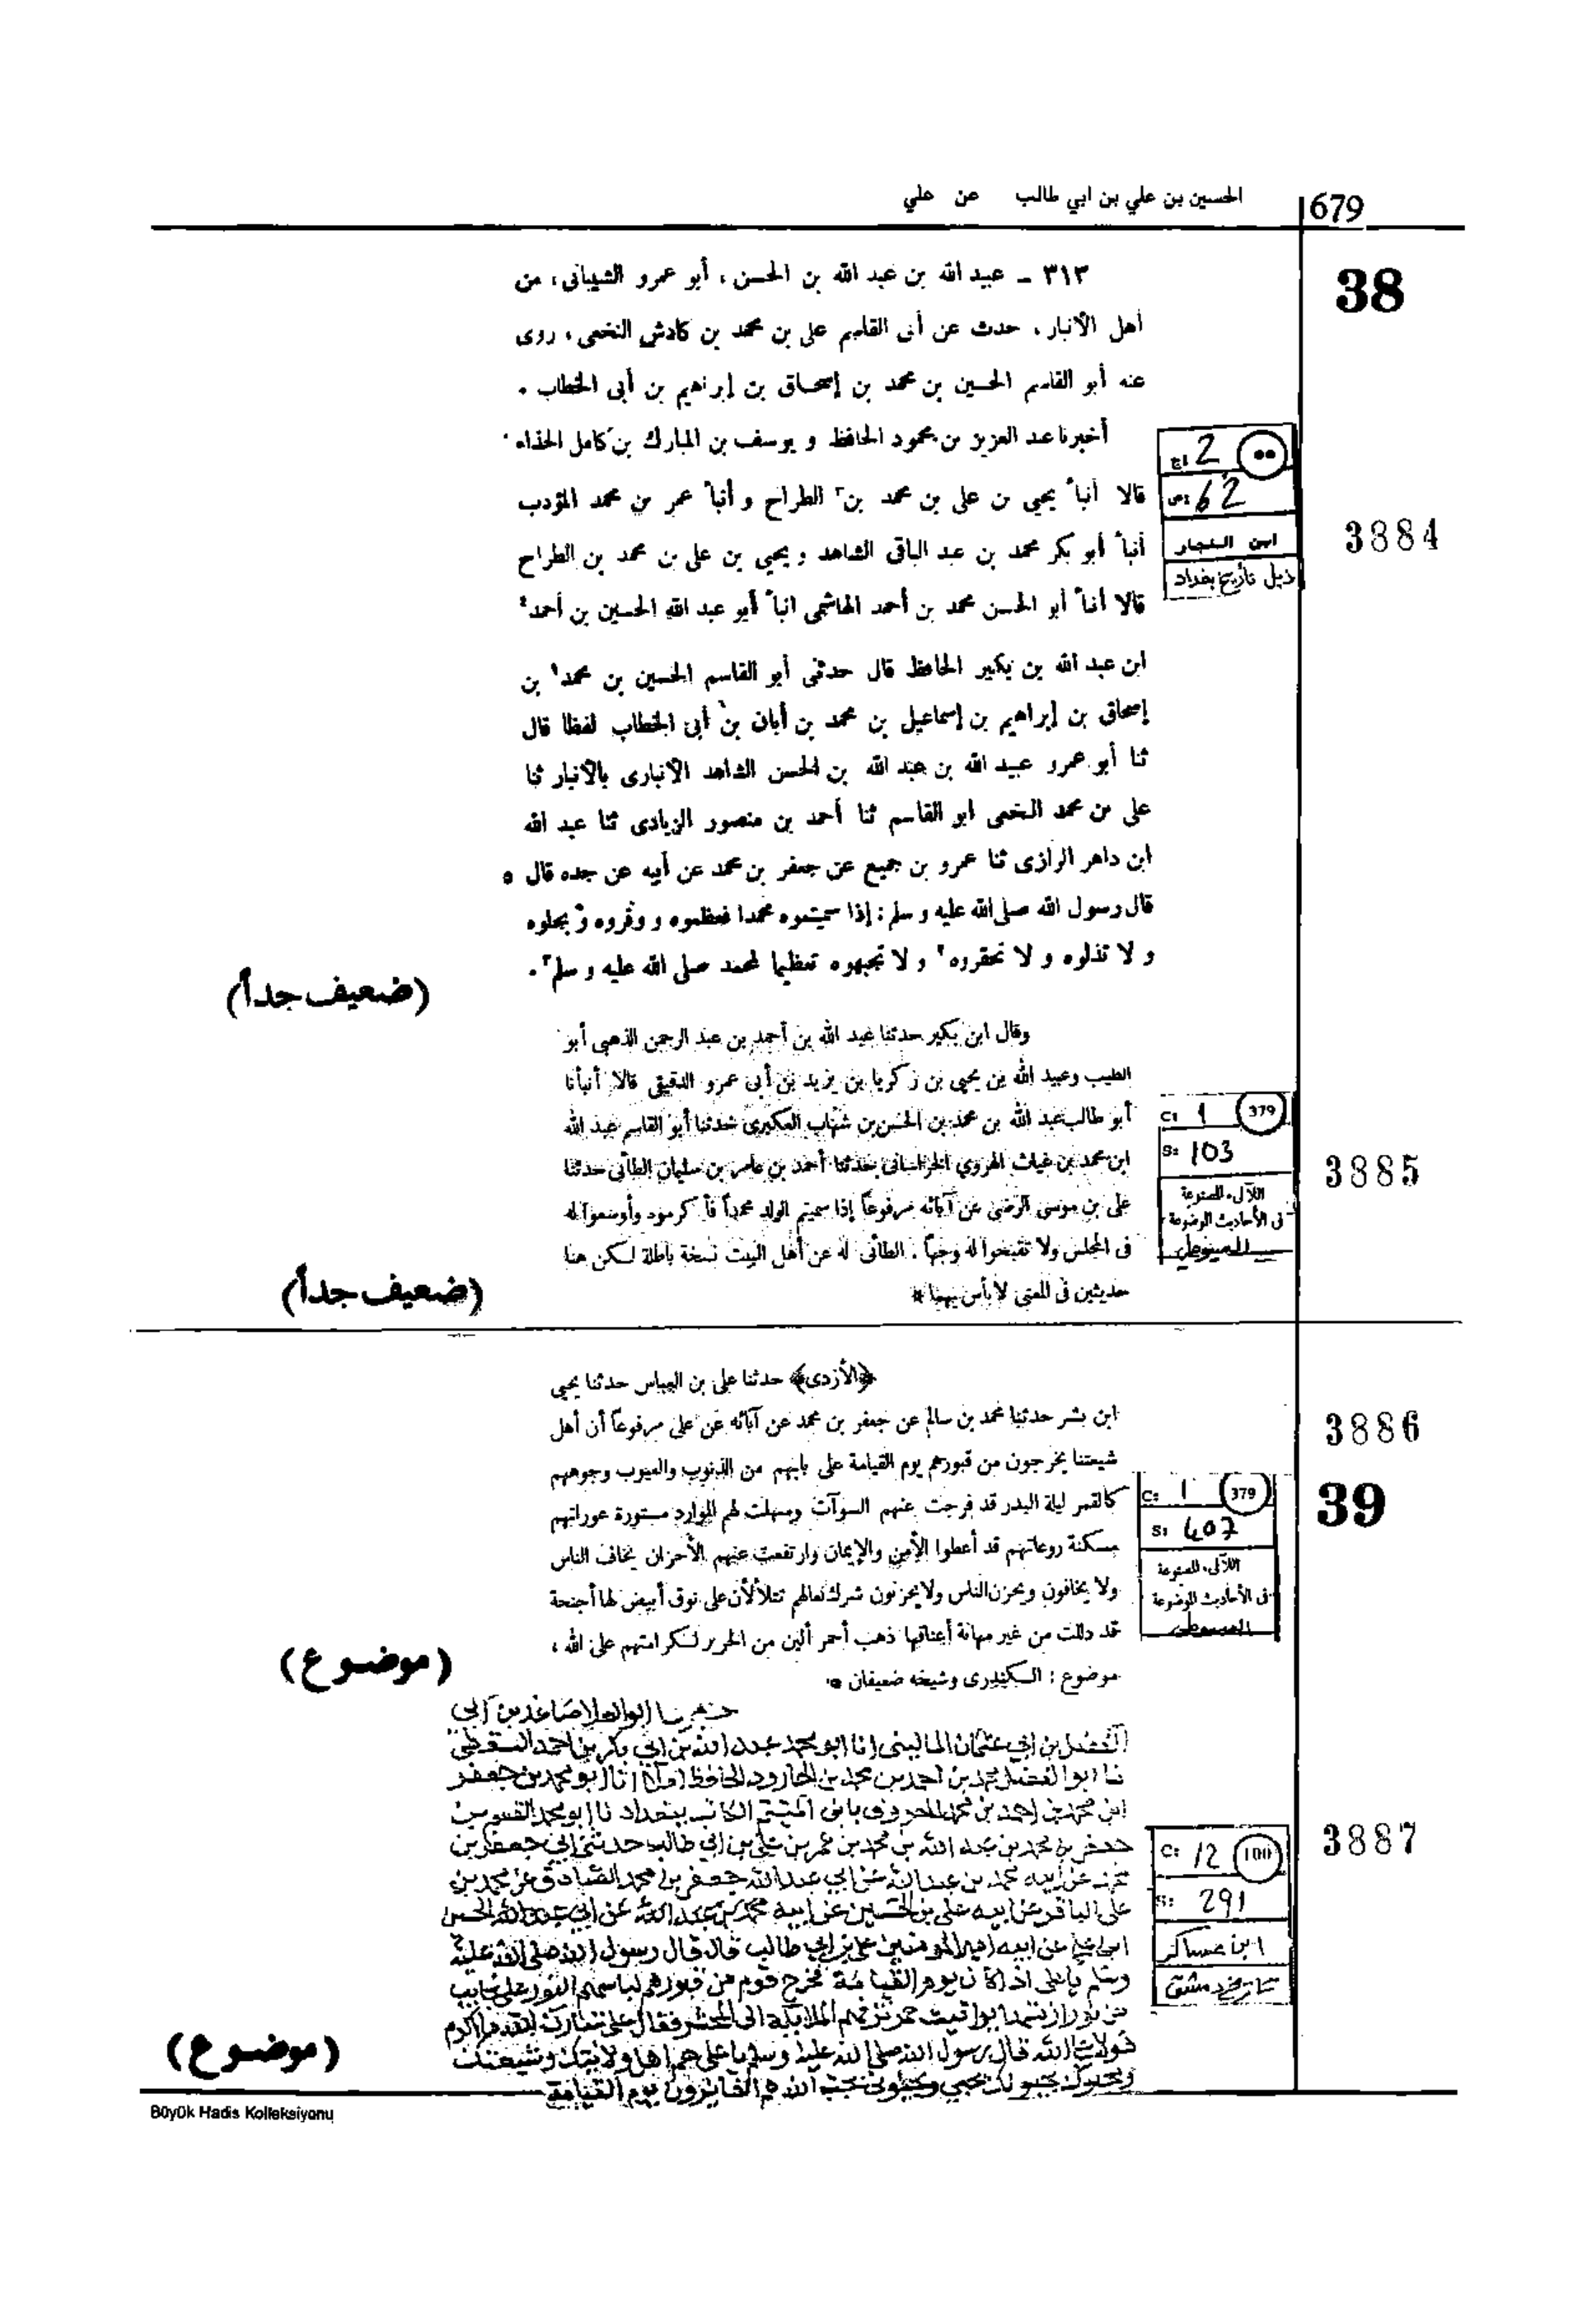 الحسين بن علي بن ابي طالب عن علي
679
38
٣١٣ - عبيد الله بن عبد الله بن الحسن، أبو عمرو الشيبانى، من
أهل الأنبار، حدث عن أبى القاسم على بن محمد بن كادش النخعى، روى
عنه أبو القاسم الحسين بن محمد بن إسحاق بن إبراهيم بن أبى الخطاب .
أخبرنا عبد العزيز بن محمود الحافظ و يوسف بن المبارك بن كامل الحذاء
قالا أنبأ يحيى بن على بن محمد بن الطراح و أنبأ عمر بن محمد المؤدب
أنبأ أبو بكر محمد بن عبد الباقى الشاهد و يحيى بن على بن محمد بن الطراح
قالا أنبأ أبو الحسن محمد بن أحمد الهاشمى انبأ أبو عبد الله الحسين بن أحمد
ابن عبد الله بن بكير الحافظ قال حدثنى أبو القاسم الحسين بن محمد بن
إسحاق بن إبراهيم بن إسماعيل بن محمد بن أبان بن أبى الخطاب لفظا قال
ثنا أبو عمرو عبيد الله بن عبد الله بن الحسن الشاهد الأنبارى بالأنبار ثنا
على بن محمد النخعى ابو القاسم ثنا أحمد بن منصور الزيادى ثنا عبد الله
ابن داهر الرازى ثنا عمرو بن جميع عن جعفر بن محمد عن أبيه عن جده قال
قال رسول الله صلى الله عليه و سلم: إذا سميتموه محمدا فعظموه و وقروه و بجلوه
و لا تذلوه و لا تحقروه و لا تجبهوه تعظيما لمحمد صلى الله عليه و سلم .
(ضعيف جداً)
ج: 2
ص: 62
ابن النجار
ذيل تأريخ بغداد
3884
وقال ابن بكير حدثنا عبد الله بن أحمد بن عبد الرحمن الذهبى أبو
الطيب وعبيد الله بن يحيى بن زكريا بن يزيد بن أبى عمرو الدقيقى قالا أنبأنا
أبو طالب عبد الله بن محمد بن الحسن بن شهاب العكبرى حدثنا أبو القاسم عبد الله
ابن محمد بن غياث الهروي الخراسانى حدثنا أحمد بن عامر بن سليمان الطائى حدثنا
على بن موسى الرضى عن آبائه مرفوعاً إذا سميتم الولد محمداً فأكرموه وأوسعوا له
فى المجلس ولا تقبحوا له وجهاً . الطائى له عن أهل البيت نسخة باطلة لكن هنا
حديثين فى المعنى لا بأس بهما *
(ضعيف جداً)
C: 1 379
S: 103
اللآلىء المصنوعة
فى الأحاديث الموضوعة
السيوطى
3885
﴿الأزدى﴾ حدثنا على بن العباس حدثنا يحيى
ابن بشر حدثنا محمد بن سالم عن جعفر بن محمد عن آبائه عن على مرفوعاً أن أهل
شيعتنا يخرجون من قبورهم يوم القيامة على بابهم من الذنوب والعيوب وجوههم
كالقمر ليلة البدر قد فرجت عنهم السوآت وسهلت لهم الموارد مستورة عوراتهم
مسكنة روعاتهم قد أعطوا الأمن والإيمان وارتفعت عنهم الأحزان يخاف الناس
ولا يخافون ويحزن الناس ولا يحزنون شرك نعالهم تتلألأ على نوق أبيض لها أجنحة
قد دللت من غير مهانة أعناقها ذهب أحمر ألين من الحرير لكرامتهم على الله،
موضوع: الكندرى وشيخه ضعيفان *
(موضوع)
3886
39
C: 1 379
S: 407
اللآلىء المصنوعة
فى الأحاديث الموضوعة
السيوطى
ابو العلا صاعد بن ابي
الفضل بن ابي عثمان الماليني انا ابو محمد عبد الله بن ابي بكر بن احمد السقطي
نا ابو الفضل محمد بن احمد بن محمد بن الجارود الحافظ املآ انا ابو محمد بن جعفر
ابن محمد بن احمد بن محمد المعروف بابن المتيم الكاتب ببغداد نا ابو محمد
جعفر بن محمد بن عبد الله بن محمد بن عمر بن علي بن ابي طالب حدثني ابي جعفر بن
محمد عن ابيه محمد بن عبد الله عن ابي عبد الله جعفر بن محمد الصادق عن محمد بن
علي الباقر عن ابيه علي بن الحسين عن ابيه عن ابي عبد الله الحسين
ابن علي عن ابيه امير المومنين علي بن ابي طالب قال قال رسول الله صلى الله عليه
وسلم يا علي اذا كان يوم القيامة يخرج قوم من قبورهم لباسهم النور على نجايب
من نور ازمتها يواقيت حمر تزفهم الملايكة الى المحشر فقال علي تبارك الله ما اكرم
قوما على الله قال رسول الله صلى الله عليه وسلم يا علي هم اهل ولايتك وشيعتك
ومحبوك يحبونك بحبي ويحبوني بحب الله هم الفايزون يوم القيامة
(موضوع)
C: 12 100
S: 291
ابن عساكر
تاريخ دمشق
3887
Büyük Hadis Kolleksiyonu